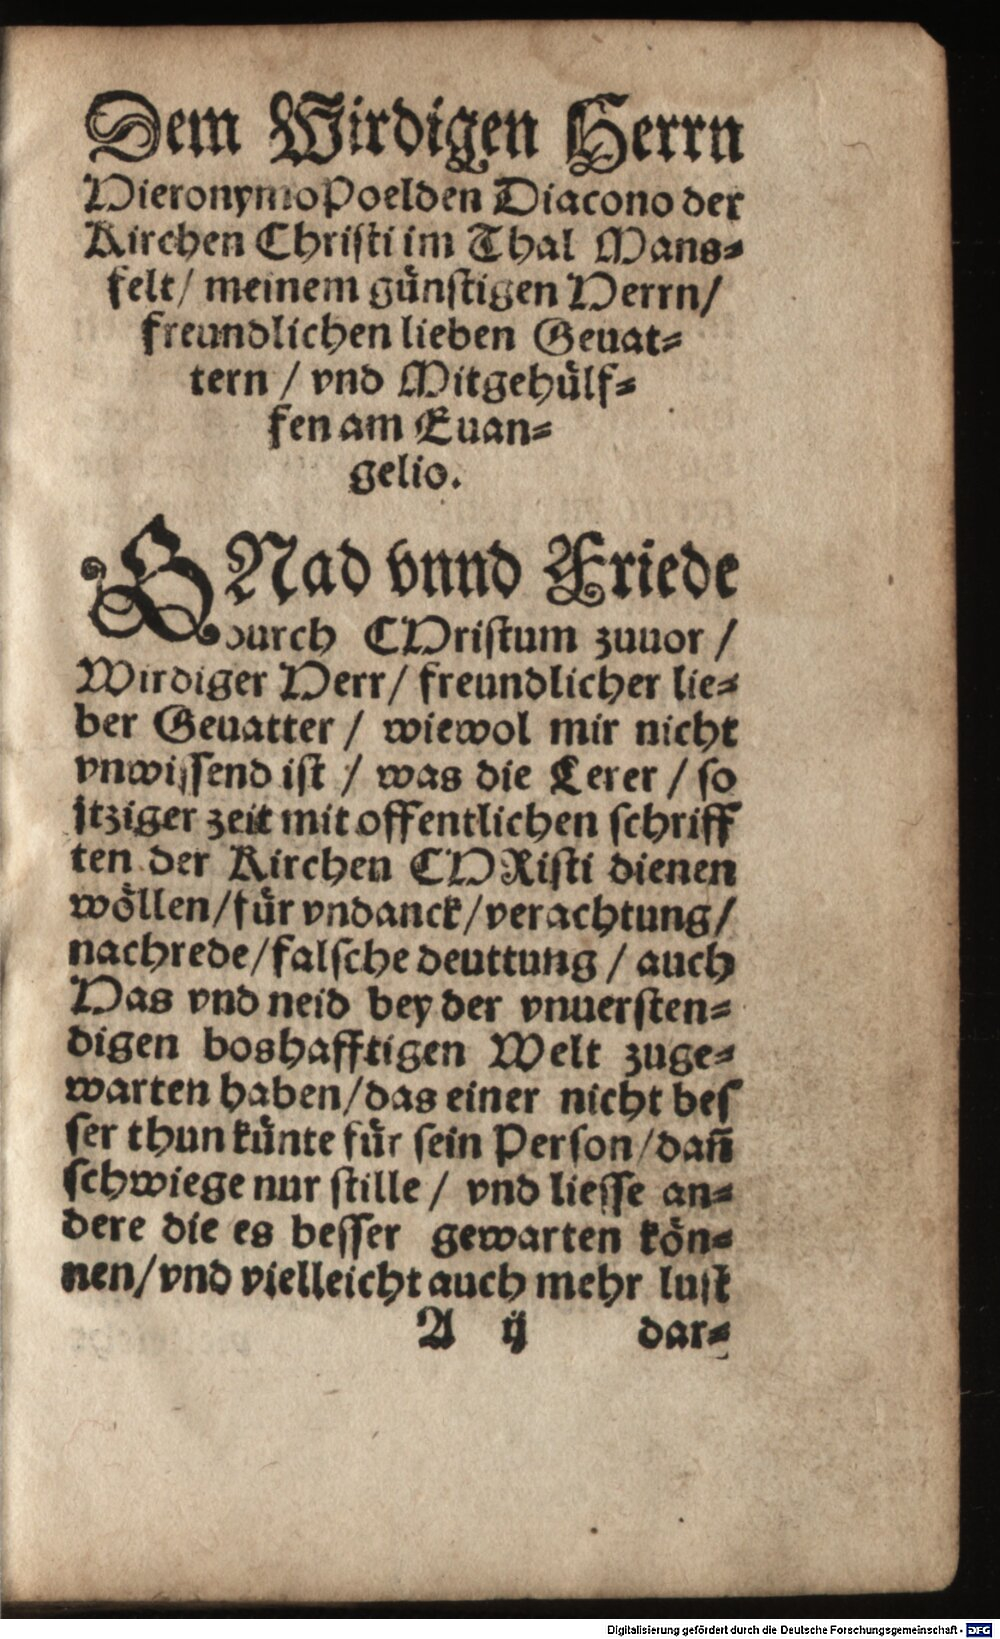 Dem Wirdigen Herrn
Hieronymo Poelden Diacono der
Kirchen Christi im Thal Mans⸗
felt/ meinem günstigen Herrn/
freundlichen lieben Geuat⸗
tern / vnd Mitgehülf⸗
fen am Euan⸗
gelio.
GNad vnnd Friede
durch CHristum zuuor /
Wirdiger Herr/ freundlicher lie⸗
ber Geuatter / wiewol mir nicht
vnwissend ist / was die Lerer / so
itziger zeit mit offentlichen schriff
ten der Kirchen CHRisti dienen
wöllen/für vndanck/verachtung/
nachrede/falsche deuttung / auch
Has vnd neid bey der vnuersten⸗
digen boshafftigen Welt zuge⸗
warten haben/das einer nicht bes
ser thun künte für sein Person/dañ
schwiege nur stille / vnd liesse an⸗
dere die es besser gewarten kön⸗
nen/vnd vielleicht auch mehr lust
A ij dar⸗
Digitalisierung gefördert durch die Deutsche Forschungsgemeinschaft - DFG